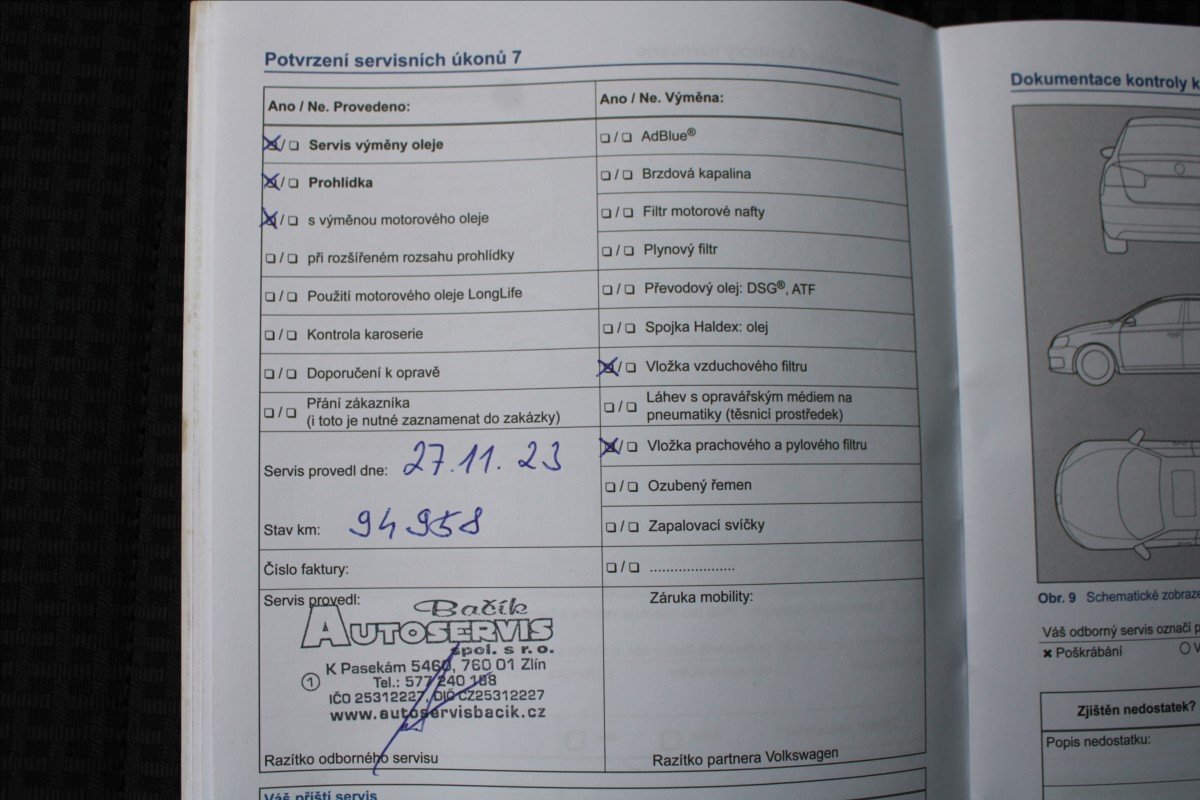 Potvrzení servisních úkonů 7
Ano / Ne. Provedeno:
Servis výměny oleje
Prohlídka
s výměnou motorového oleje
při rozšířeném rozsahu prohlídky
Použití motorového oleje LongLife
Kontrola karoserie
Doporučení k opravě
Přání zákazníka
(i toto je nutné zaznamenat do zakázky)
Servis provedl dne: 27.11.23
Stav km: 94958
Číslo faktury:
Servis provedl:
Bačík
AUTOSERVIS
spol. s r.o.
K Pasekám 5460, 760 01 Zlín
1 Tel.: 577 240 188
IČO 25312227, DIČ CZ25312227
www.autoservisbacik.cz
Razítko odborného servisu
Ano / Ne. Výměna:
AdBlue®
Brzdová kapalina
Filtr motorové nafty
Plynový filtr
Převodový olej: DSG®, ATF
Spojka Haldex: olej
Vložka vzduchového filtru
Láhev s opravářským médiem na
pneumatiky (těsnicí prostředek)
Vložka prachového a pylového filtru
Ozubený řemen
Zapalovací svíčky
.....................
Záruka mobility:
Razítko partnera Volkswagen
Váš příští servis
Dokumentace kontroly k
Obr. 9 Schematické zobraze
Váš odborný servis označí p
Poškrábání
Zjištěn nedostatek?
Popis nedostatku: